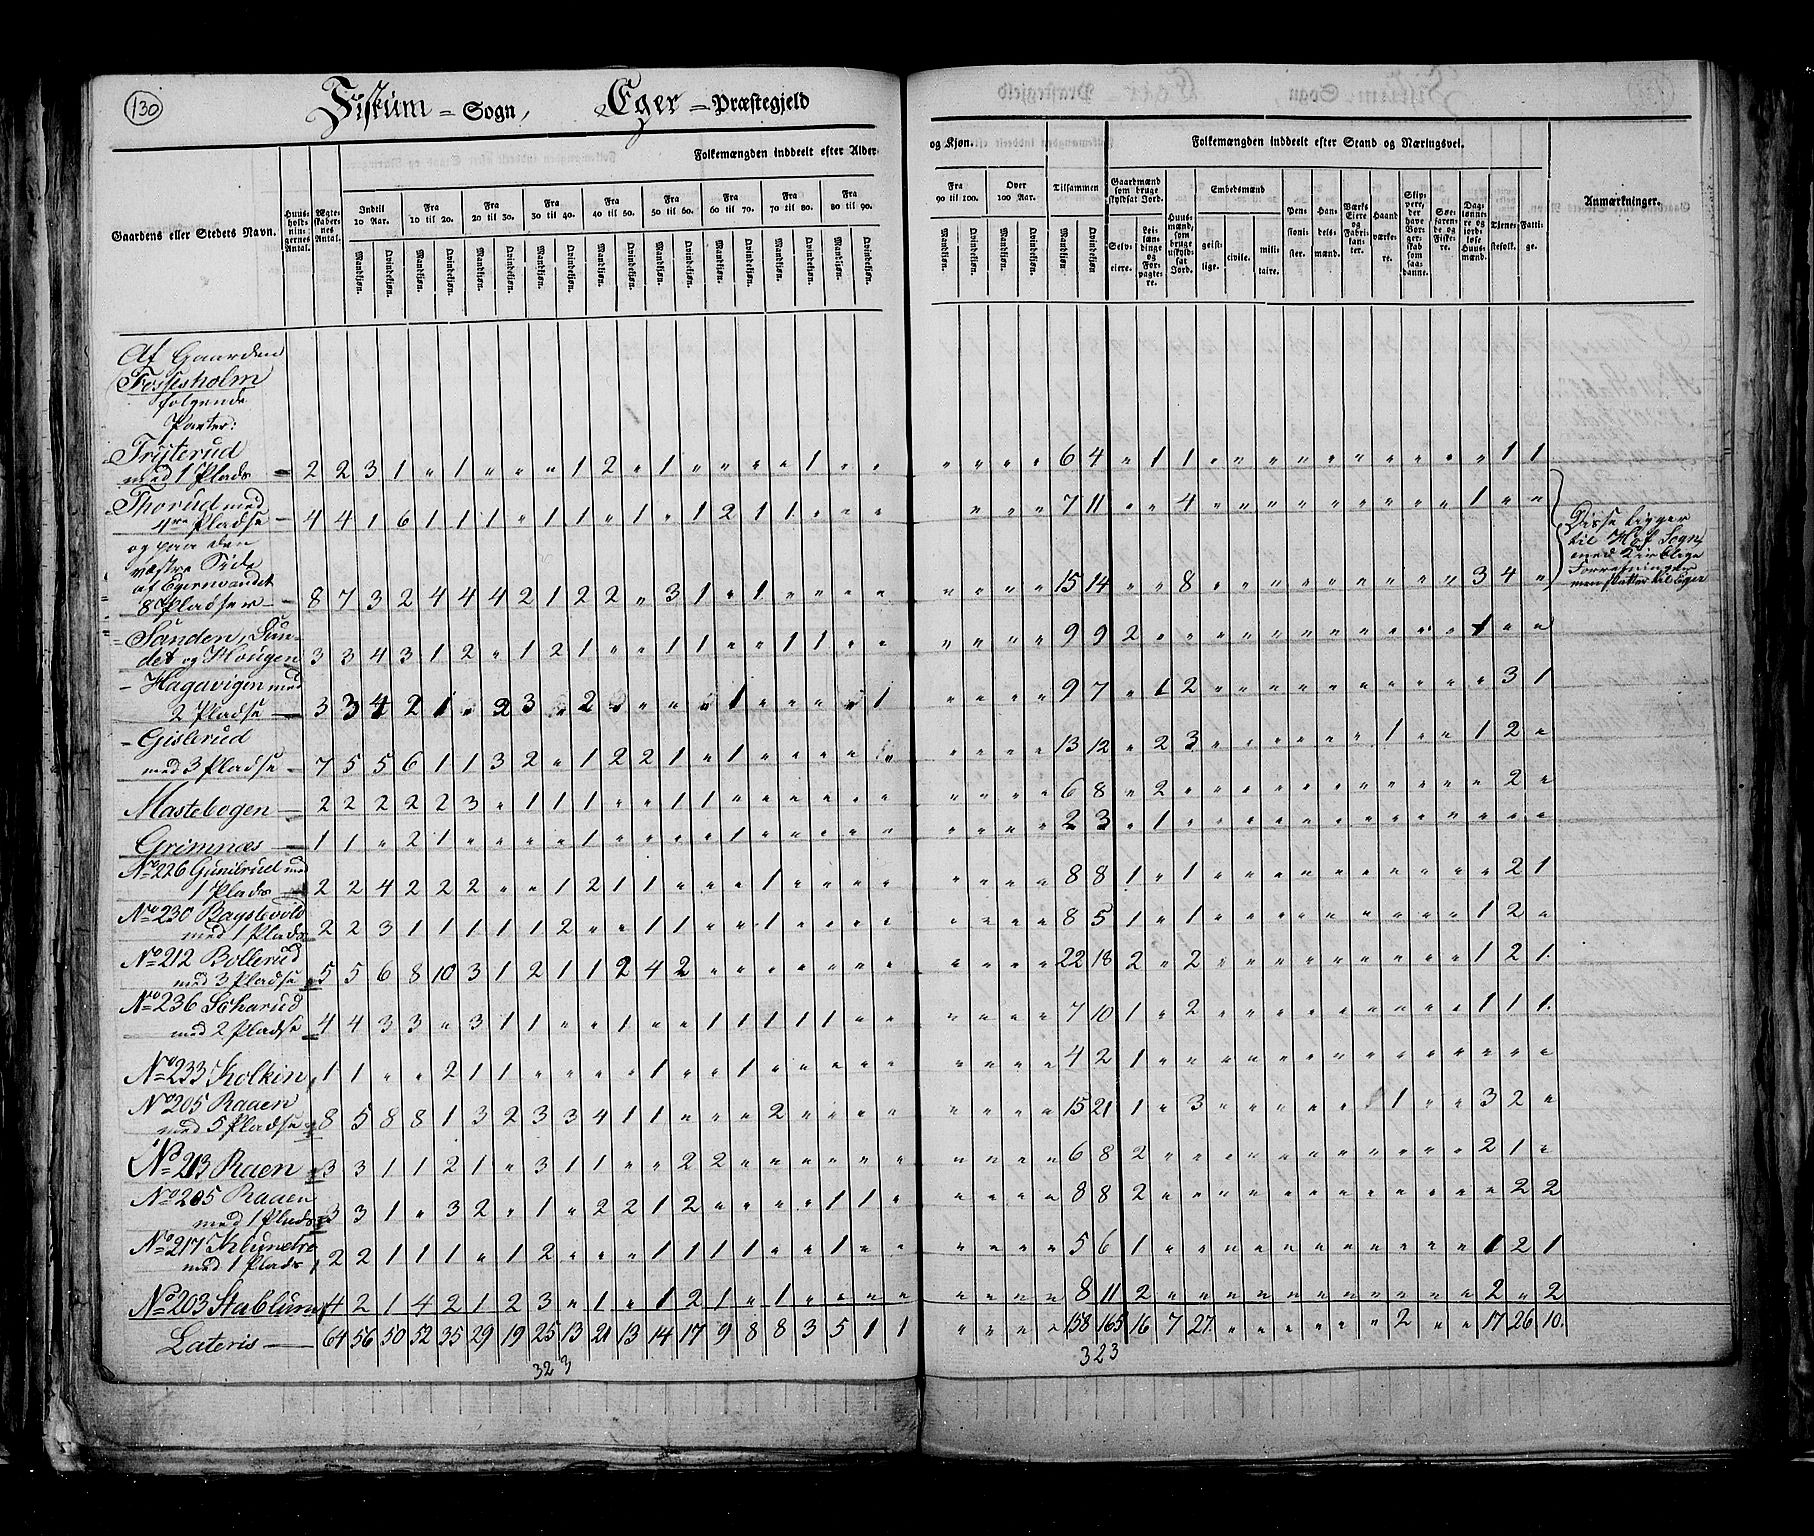 130
Fiskum = Sogn, Eger = Præstegjeld
Folkemængden inddeelt efter Alder
og Kjøn.
Folkemængden inddeelt efter Stand og Næringsvei.
Gaardens eller Stedets Navn.
Huusholdningernes Antal.
Ægteskabernes Antal.
Indtil 10 Aar.
Fra 10 til 20.
Fra 20 til 30.
Fra 30 til 40.
Fra 40 til 50.
Fra 50 til 60.
Fra 60 til 70.
Fra 70 til 80.
Fra 80 til 90.
Fra 90 til 100.
Over 100 Aar.
Tilsammen
Mandkjøn. Qvindekjøn.
Gaardmænd som bruge skyldsat Jord.
Selveiere.
Leilændinge og Forpagtere.
Huusmænd, som bruge uskyldsat Jord.
Embedsmænd
geistlige.
civile.
militaire.
Pensionister.
Handelsmænd.
Værks Eiere og Fabrikanter.
Haandværkere.
Søefarende og Fiskere.
Daglønnere og jordløse Huusmænd.
Tjenestefolk.
Fattige.
Anmærkninger.
Af Gaarden
Fossesholm
følgende
Parter:
Trysterud
med 1 Plads = 2 2 3 1 " 1 " " " 1 2 " 1 " " " " 1 " " " " " " 6 4 " 1 1 " " " " " " " " " " 1 1
Thorud med
4re Pladse - 4 4 1 6 1 1 1 " 1 1 " 1 " 1 2 1 1 " " " " " " 7 11 " " 4 " " " " " " " " " 1 " "
og paa den
væstre Side
af Egernvandet
8 Pladser - 8 7 3 2 4 4 4 2 1 2 2 " 3 1 " 1 " " " " " " " " 15 14 " " 8 " " " " " " " " " 3 4 "
Disse ligger
til Hof Sogn
med Kirklige
Forretninger
men skatter til Eger
Sanden, Sun-
det og Hougen 3 3 4 3 1 2 " 1 2 1 " " 1 1 " " 1 1 " " " " " " 9 9 2 " " " " " " " " " " " 1 " "
- Hagavigen med
2 Pladse - 3 3 4 2 1 " 2 3 " 2 " " " " 1 " " " " 1 " " " " 9 7 " 1 2 " " " " " " " " " " 3 1
- Gislerud
med 3 Pladse - 7 5 5 6 1 1 3 2 " 1 2 2 1 " 1 " " " " " " " " 13 12 " 2 3 " " " " " " 1 " " 1 2 "
Mastebogen - 2 2 2 2 2 3 " 1 1 1 " " 1 1 " " " " " " " " " " 6 8 " 2 " " " " " " " " " " " 2 "
Grimnæs - 1 1 " 2 1 " " " " 1 " " " " 1 " " " " " " " " " 2 3 " 1 " " " " " " " " " " " " "
No 226 Gunilrud med
1 Plads - 2 2 4 2 2 2 " " 1 2 1 1 " " " 1 " " " " " " " " 8 8 1 " 1 " " " " " " " " " " 2 1
No 230 Bagstevold
med 1 Plads 2 2 3 1 1 1 1 1 2 " " 1 1 " " 1 " " " " " " " " 8 5 1 " 1 " " " " " " " " " 1 2 "
No 212 Bollerud
med 3 Pladse 5 5 6 8 10 3 1 2 1 1 2 4 2 " " " " " " " " " " " 22 18 2 " 2 " " " " " " " " " 1 2 1.
No 236 Skarud
med 2 Pladse 4 4 3 3 " 3 1 1 " " 1 " " 1 1 1 1 1 " " " " " " 7 10 1 " 2 " " " " " " " " " 1 1 1.
No 233 Kolkin 1 1 " " 2 1 1 " " " " 1 " " 1 " " " " " " " " " 4 2 1 " " " " " " " " " " " " " "
No 205 Raaen
med 5 Pladse 8 5 8 8 1 3 2 3 3 4 1 1 " " " 2 " " " " " " " " 15 21 1 " 3 " " " " " " 1 " " 3 2 "
No 213 Raen 3 3 1 1 2 1 " 3 1 1 " " 2 2 " " " " " " " " " " 6 8 2 " " " " " " " " " " " 2 1 "
No 205 Raaen
med 1 Plads 3 3 1 " 3 2 " 1 " 2 2 1 2 " " " " 1 1 " " " " " 8 8 2 " " " " " " " " " " " " 2 2
No 217 Klunetre
med 1 Plads 2 2 1 1 1 " 1 2 " " " 1 1 1 1 " " 1 " " " " " " 5 6 1 " " " " " " " " " " " 1 2 1
No 203 Stablum 4 2 1 4 2 1 2 3 " 1 " 1 2 1 " 1 " " " " " " " " 8 11 2 " " " " " " " " " " " 2 " 2
Lateris - 64 56 50 52 35 29 19 25 13 21 13 14 17 9 8 8 3 5 1 1 " " " " 158 165 16 7 27 " " " " " " 2 " " 17 26 10.
323
323